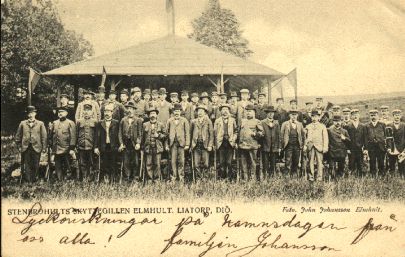 STENBROHULTS SKYTTEGILLEN ELMHULT. LIATORP, DIÖ.
Foto. John Johansson Elmhult.
Lyckönskningar på namnsdagen från
oss alla! familjen Johansson